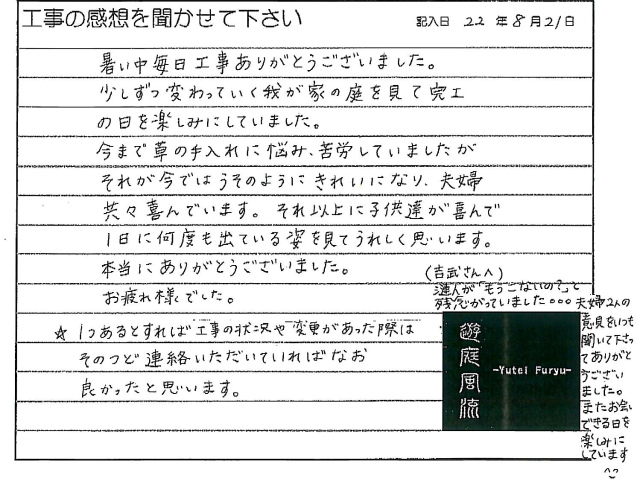 工事の感想を聞かせて下さい
記入日 22 年 8 月 21 日
暑い中毎日工事ありがとうございました。
少しずつ変わっていく我が家の庭を見て完工
の日を楽しみにしていました。
今まで草の手入れに悩み、苦労していましたが
それが今ではうそのようにきれいになり、夫婦
共々喜んでいます。それ以上に子供達が喜んで
1日に何度も出ている姿を見てうれしく思います。
本当にありがとうございました。
お疲れ様でした。
☆ 1つあるとすれば工事の状況や変更があった際は
そのつど連絡いただいていればなお
良かったと思います。
(吉武さんへ)
蓮人が「もうこないの?」と
残念がっていました。。。夫婦2人の
意見をいつも
聞いて下さっ
てありがと
うござい
ました。
またお会い
できる日を
楽しみに
しています
^^
遊庭風流
-Yutei Furyu-